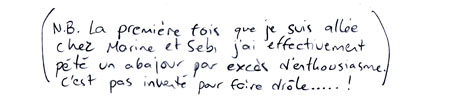 (N.B. La première fois que je suis allée
chez Marine et Seb, j'ai effectivement
pété un abajour par excès d'enthousiasme.
c'est pas inventé pour faire drôle.....!)